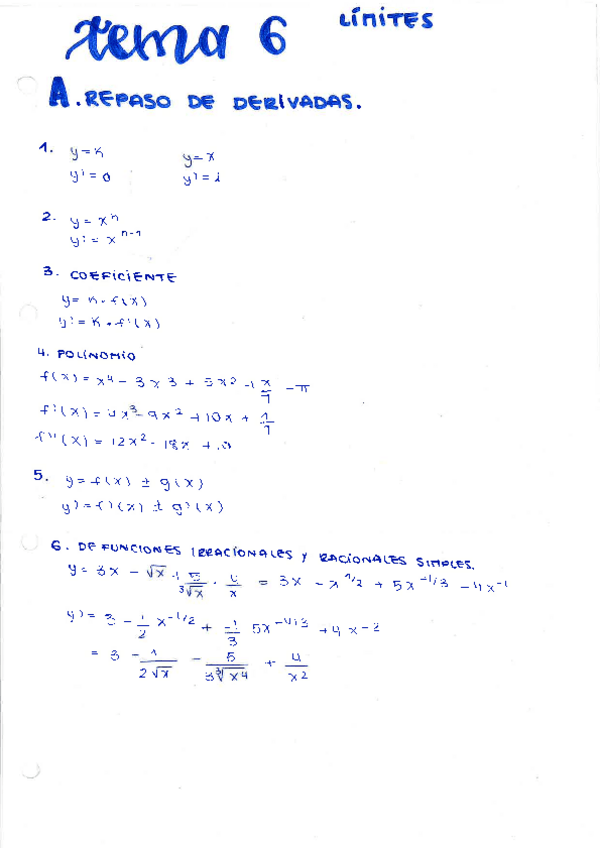 tema 6 LÍMITES
A. REPASO DE DERIVADAS.
1. y = k y = x
y' = 0 y' = 1
2. y = xⁿ
y' = xⁿ⁻¹
3. COEFICIENTE
y = k · f(x)
y' = k · f'(x)
4. POLINOMIO
f(x) = x⁴ - 3x³ + 5x² + x/7 - π
f'(x) = 4x³ - 9x² + 10x + 1/7
f''(x) = 12x² - 18x + 10
5. y = f(x) ± g(x)
y' = f'(x) ± g'(x)
6. DE FUNCIONES IRRACIONALES y RACIONALES SIMPLES.
y = 3x - √x + 5/∛x - 4/x = 3x - x^1/2 + 5x^-1/3 - 4x^-1
y' = 3 - 1/2 x^-1/2 + -1/3 5x^-4/3 + 4x^-2
= 3 - 1/2√x - 5/3∛x⁴ + 4/x²